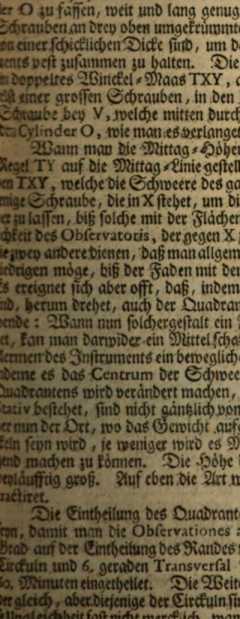 der O zu fassen, weit und lang genug
Schrauben an drey oben umgekrümmte
von einer schicklichen Dicke sind, um d
ments vest zusammen zu halten. Die
ein doppeltes Winckel-Maas TXY, d
einer grossen Schrauben, in den
Schraube bey V, welche mitten durch
den Cylinder O, wie man es verlanget
Wann man die Mittag-Höhen
Regel TY auf die Mittag-Linie gestell
en TXY, welche die Schweere des ga
nige Schraube, die in X stehet, um di
er zu lassen, biß solche mit der Flächen
des Observatoris, der gegen X
zwey andere dienen, daß man allgem
niedrigen möge, biß der Faden mit der
Es ereignet sich aber offt, daß, indem
nd, herum drehet, auch der Quadran
ende: Wann nun solchergestalt ein
et, kan man darwider ein Mittel scha
Termen des Instruments ein beweglich
deme es das Centrum der Schwee
Quadrantens wird verändert machen,
bestehet, sind nicht gäntzlich von
er nun der Ort, wo das Gewicht auf
seyn wird, je weniger wird es M
end machen zu können. Die Höhe
beyläuffig groß. Auf eben die Art w
ractiret.
Die Eintheilung des Quadrant
seyn, damit man die Observationes
Grad auf der Eintheilung des Randes
Circkuln und 6. geraden Transversal
Minuten eingetheilet. Die Weit
der gleich, aber diejenige der Circkuln sin
Ungleichheit fast nicht mercklich, wan